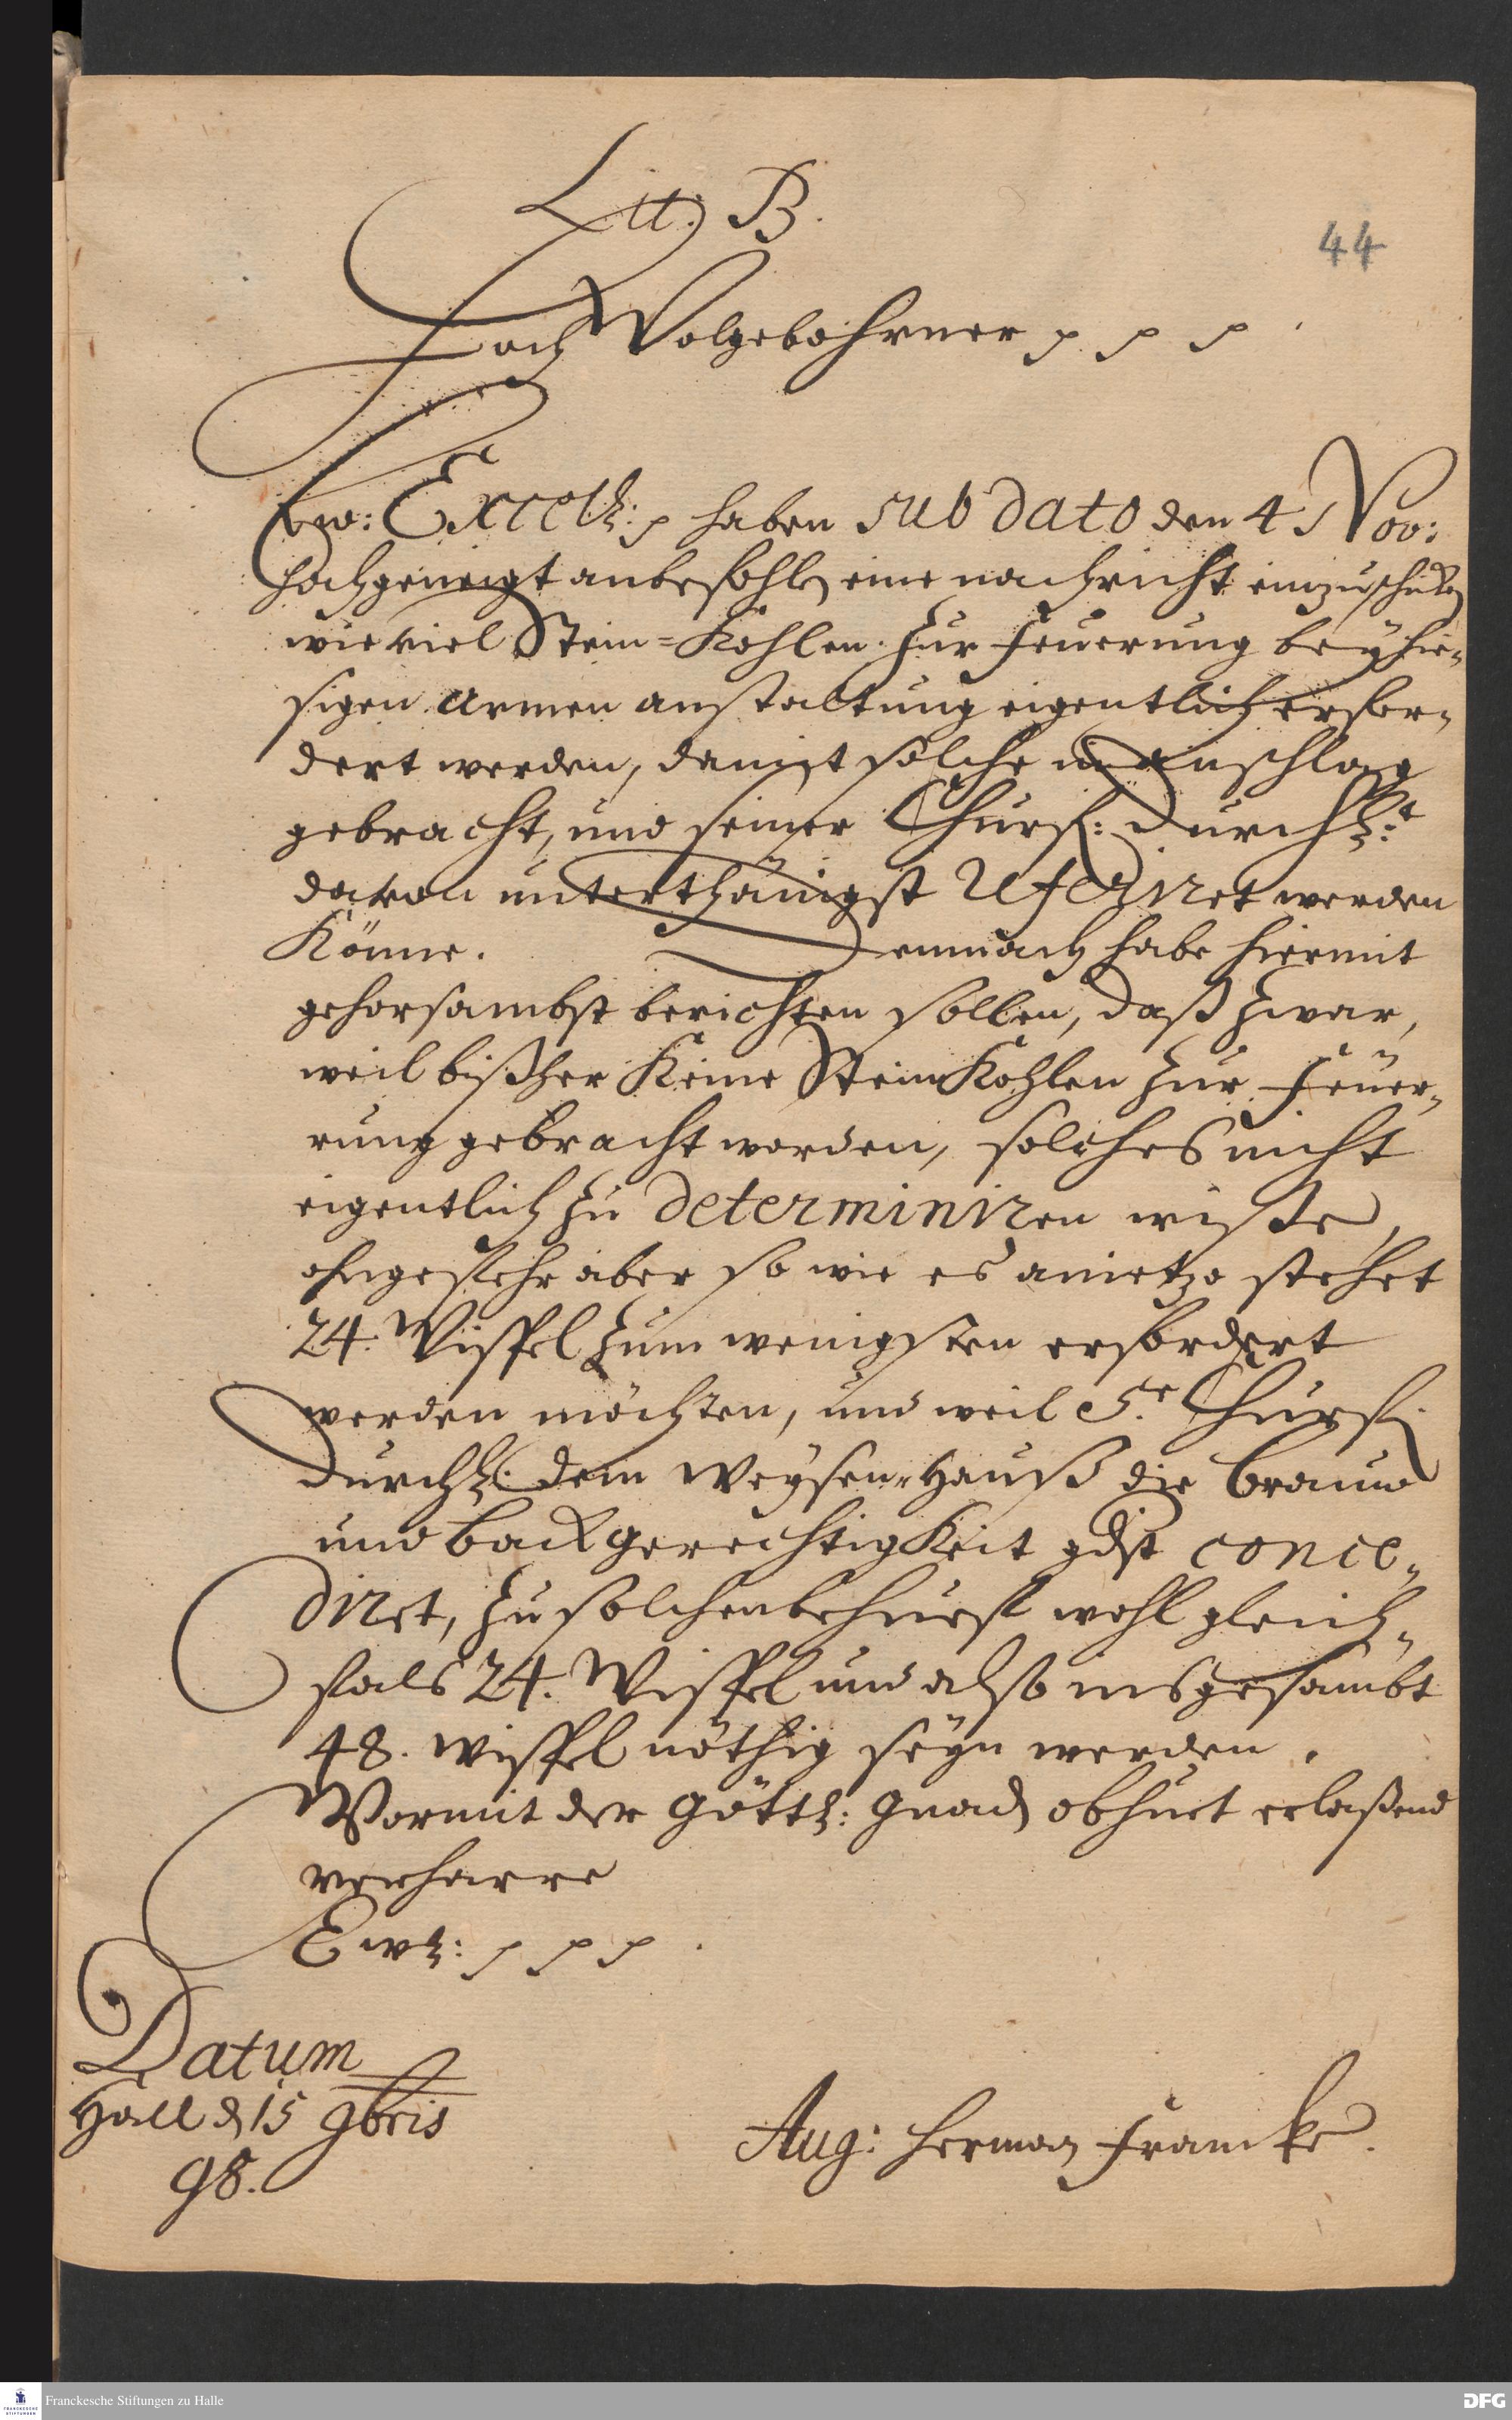 Litt: B.
44
Hoch Wolgebohrner p p p.
Ew: Excellz: p haben sub dato den 4 Nov:
hochgeneigt anbefohlen eine nachricht einzuschicken
wie viel Stein=Kohlen zur feuerung bey hie¬
sigen armen anstaltung eigentlich erfor¬
dert werden, damit solche in anschlag
gebracht, und seiner Churf: Durchl:t
davon unterthänigst referiret werden
könne. Demnach habe hiermit
gehorsambst berichten sollen, daß zwar,
weil bißher keine Stein Kohlen zur feuer¬
rung gebracht worden, solches nicht
eigentlich zu determiniren wiste,
ohngefehr aber so wie es anietzo stehet
24. Wispel zum wenigsten erfordert
werden möchten, und weil S.e Churf.
Durchl: dem Weysen=Hauß die brau
und back gerechtigkeit gdst conce¬
diret, zu solchen behueff wohl gleich¬
fals 24. Wispel und also insgesambt
48. wispel nöthig seyn werden.
Wormit der Göttl: gnaden obhuet erlaßend
verharre
Ewl: p p p.
Datum
Hall d 15 9bris
98.
Aug: Herman Francke.
Franckesche Stiftungen zu Halle
DFG